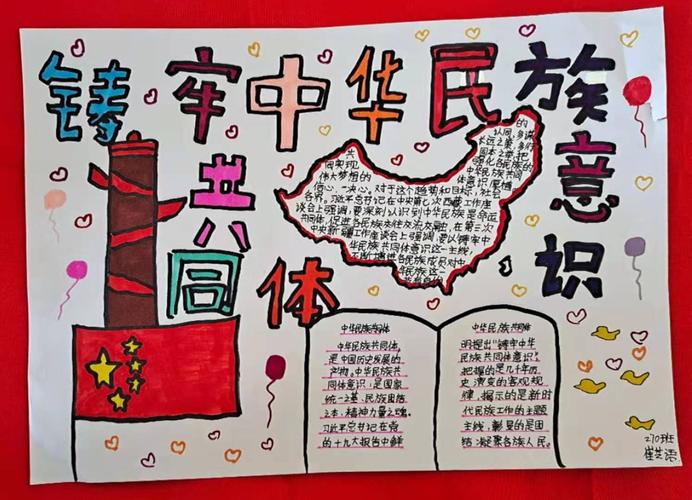 铸牢中华民族
共同体
意识
的
认同,多谋
长远之策,多行
固本之举,把
强化各民族的
中华民族共同
体意识,厚植
共
同实现
伟大梦想的
信心、决心。对于这个趋势和目标,社会
各界。习近平总书记在中央第七次西藏工作座
谈会上强调,要深刻认识到中华民族是命运
共同体,促进各民族交往交流交融,在第三次
中央新疆工作座谈会上强调,要以铸牢中
华民族共同体意识这一主线,
不断增进各民族成员对中
华民族这一
中华民族共同体
中华民族共同体,
是中国历史发展的
产物。中华民族共
同体意识,是国家
统一之基、民族团结
之本、精神力量之魂。
习近平总书记在党
的十九大报告中鲜
中华民族共同体
明提出"铸牢中华
民族共同体意识",
把握的是几千年历
史演变的客观规
律,揭示的是新时
代民族工作的主题
主线,彰显的是团
结凝聚各族人民。
270班
崔芸语